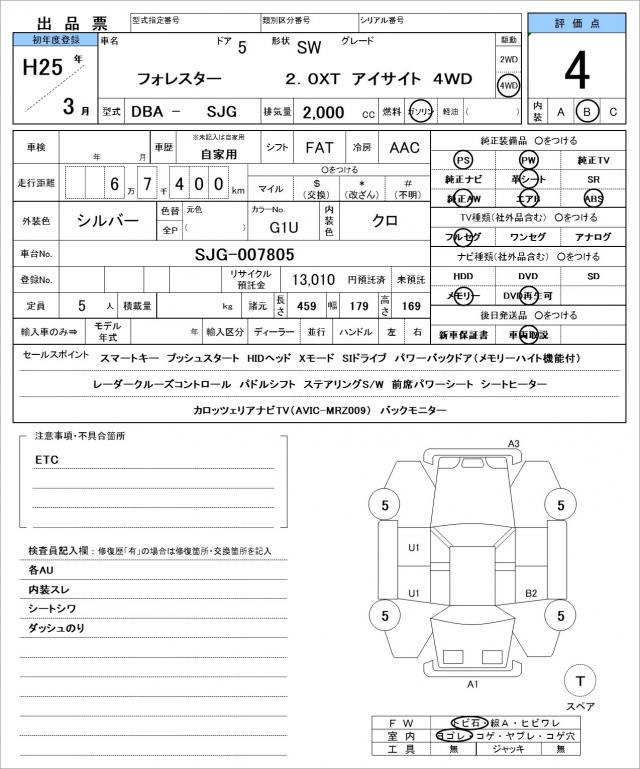 出品票
型式指定番号 類別区分番号 シリアル番号
評価点
初年度登録
H25年
3月
車名 ドア 5 形状 SW グレード
フォレスター 2.0XT アイサイト 4WD
駆動
2WD
4WD
4
内装 A B C
型式 DBA － SJG 排気量 2,000 cc 燃料 ガソリン 軽油 ( )
車検 年 月 車歴 ※未記入は自家用 自家用 シフト FAT 冷房 AAC
走行距離 6万7千400km マイル
○をつける
$（交換） *（改ざん） #（不明）
外装色 シルバー 色替 元色
全P ( )
カラーNo. G1U 内装色 クロ
車台No. SJG-007805
登録No. リサイクル預託金 13,010 円預託済 未預託
定員 5 人 積載量 kg 諸元 長さ 459 幅 179 高さ 169
輸入車のみ⇒ モデル年式 年 輸入区分 ディーラー 並行 ハンドル 左 右
純正装備品 ○をつける
PS PW 純正TV
純正ナビ 革シート SR
純正AW エアB ABS
TV種類(社外品含む) ○をつける
フルセグ ワンセグ アナログ
ナビ種類(社外品含む) ○をつける
HDD DVD SD
メモリー DVD再生可
後日発送品 ○をつける
新車保証書 車両取説
セールスポイント スマートキー プッシュスタート HIDヘッド Xモード SIドライブ パワーバックドア(メモリーハイト機能付)
レーダークルーズコントロール パドルシフト ステアリングS/W 前席パワーシート シートヒーター
カロッツェリアナビTV(AVIC-MRZ009) バックモニター
注意事項・不具合箇所
ETC
検査員記入欄：修復歴「有」の場合は修復箇所・交換箇所を記入
各AU
内装スレ
シートシワ
ダッシュのり
A3
5 5
U1
U1 B2
5 5
A1
T
スペア
FW トビ石・線A・ヒビワレ
室内 ヨゴレ・コゲ・ヤブレ・コゲ穴
工具 無 ジャッキ 無